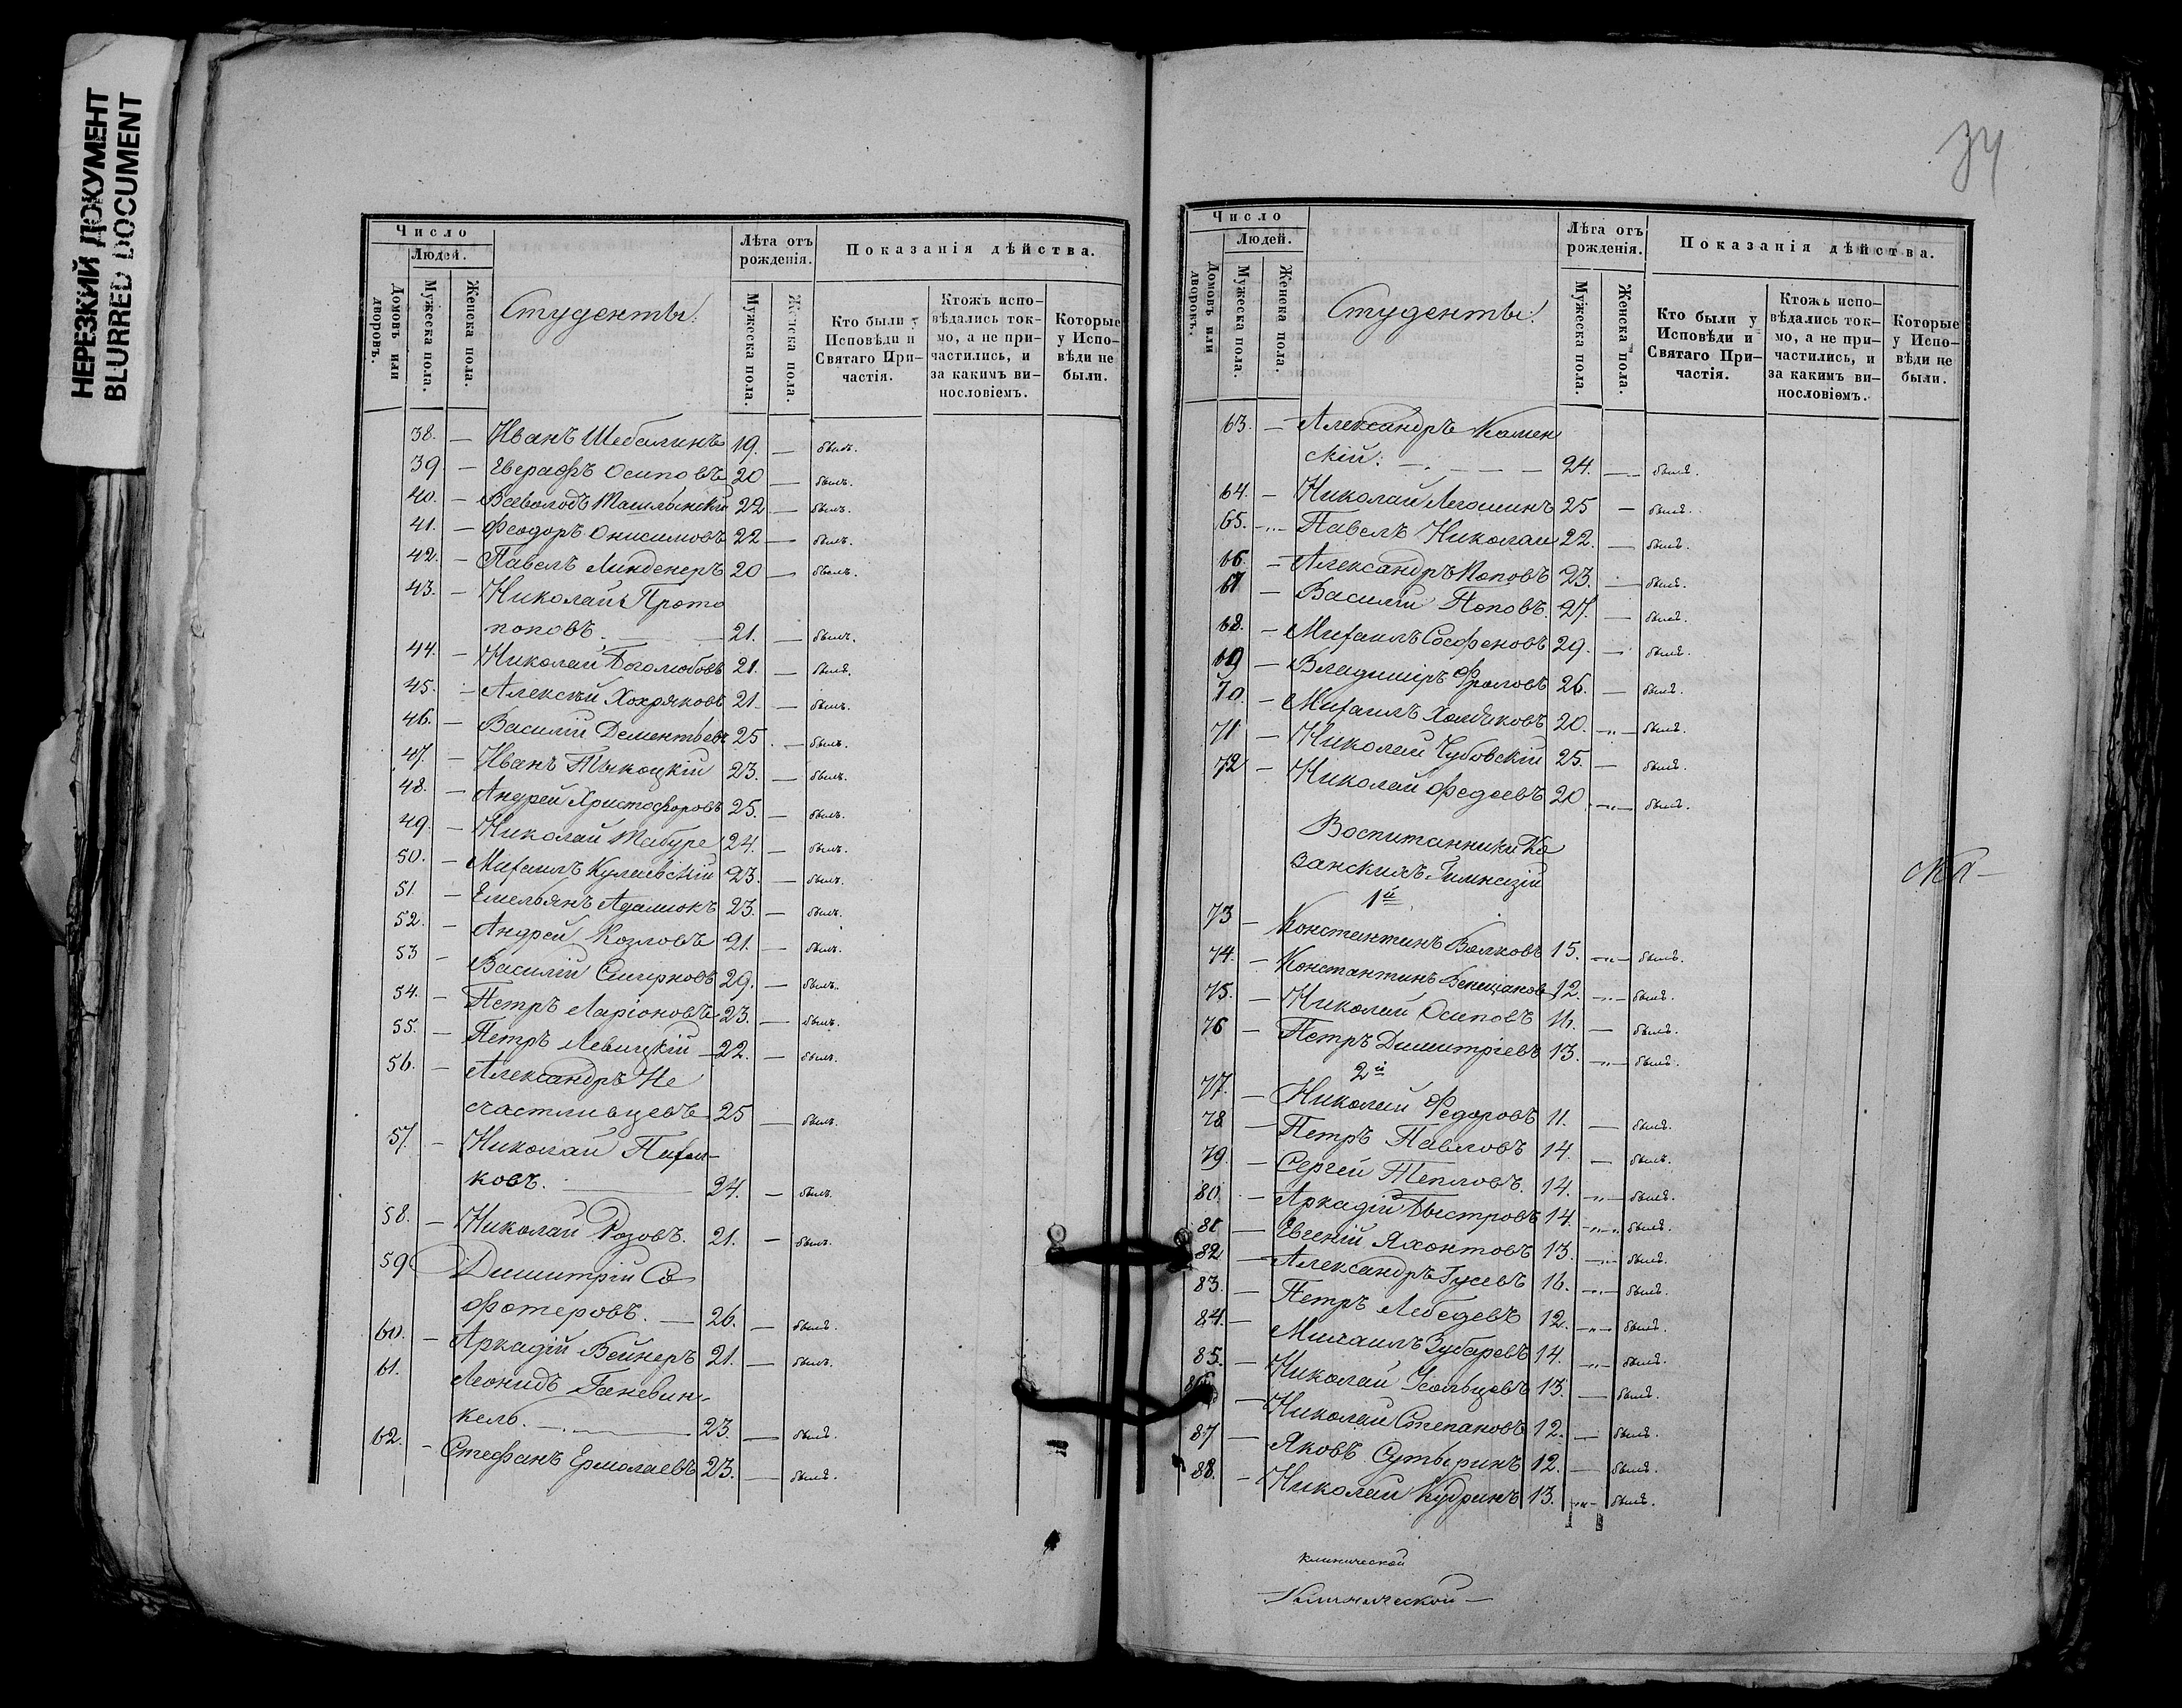 НЕРЕЗКИЙ ДОКУМЕНТ
BLURRED DOCUMENT
Число
Людей.
Домовъ или дворовъ.
Мужеска пола.
Женска пола.
Студенты:
Лѣта отъ рожденія.
Мужеска пола.
Женска пола.
Показанія дѣйства.
Кто были у Исповѣди и Святаго Причастія.
Ктожъ исповѣдались токмо, а не причастились, и за какимъ винословіемъ.
Которые у Исповѣди не были.
38. — Иванъ Шебалинъ 19. — былъ.
39. — Еверафъ Осиповъ 20 — былъ.
40. — Всеволодъ 22. — былъ.
41. — Феодоръ Онисимовъ 22 — былъ.
42. — Павелъ Линденеръ 20 — былъ.
43. — Николай Прото
поповъ. — 21. — былъ.
44. — Николай Боголюбовъ 21. — былъ.
45. — Алексѣй Хохряковъ 21. — былъ.
46. — Василій Дементьевъ 25. — былъ.
47. — Иванъ Тыкоцкій 23. — былъ.
48. — Андрей Христофоровъ 25. — былъ.
49. — Николай Табуре 24. — былъ.
50. — Михаилъ Кулаевскій 23. — былъ.
51. — Емельянъ Адамюкъ 23. — былъ.
52. — Андрей Козловъ 21. — былъ.
53 — Василій Смирновъ 29. — былъ.
54. — Петръ Ларіоновъ 23. — былъ.
55. — Петръ Левицкій — 22. — былъ.
56. — Александръ Не
счастливцевъ 25 — былъ.
57. — Николай
ковъ. — 24. — былъ.
58. — Николай Розовъ. 21. — былъ.
59 Димитрій Со
фотеровъ. — 26. — былъ.
60. — Аркадій Вейнеръ 21. — былъ.
61. Леонидъ Ганевин-
кель. — 23. — былъ.
62. — Стефанъ Ермолаевъ 23. — былъ.
34
Число
Людей.
Домовъ или дворовъ.
Мужеска пола.
Женска пола.
Студенты.
Лѣта отъ рожденія.
Мужеска пола.
Женска пола.
Показанія дѣйства.
Кто были у Исповѣди и Святаго Причастія.
Ктожъ исповѣдались токмо, а не причастились, и за какимъ винословіемъ.
Которые у Исповѣди не были.
63. — Александръ Камен
скій: — 24. — былъ.
64. — Николай Легошинъ 25 — былъ.
65. — Павелъ Николаи 22. — былъ.
66. — Александръ Поповъ 23. — былъ.
67 — Василій Поповъ. 27. — былъ.
68. — Михаилъ Сосфеновъ 29. — былъ.
69 — Владиміръ Фроловъ 26. — былъ.
70. — Михаилъ 20. — былъ.
71 — Николай Чубовскій 25. — былъ.
72 — Николай Федеевъ 20. — былъ.
Воспитанники Ка
занскихъ Гимназій
1й
73 — Константинъ Волковъ 15. — былъ.
74. — Константинъ Венеціановъ 12. — былъ.
75. — Николай Осиповъ 16. — былъ.
76 — Петръ Димитріевъ 13. — былъ.
2й
77. — Николай Федоровъ 11. — былъ.
78 — Петръ Павловъ 14. — былъ.
79. — Сергей Тепловъ. 14. — былъ.
80. — Аркадій Быстровъ 14. — былъ.
81 — Евгеній Яхонтовъ 13. — былъ.
82 — Александръ Гусевъ 16. — былъ.
83. — Петръ Лебедевъ 12. — былъ.
84. — Михаилъ Зубаревъ 14. — былъ.
85. — Николай Усольцевъ 13. — былъ.
86 — Николай Степановъ 12. — былъ.
87 — Яковъ Сутыринъ 12. — былъ.
88. — Николай Кудринъ 13. — былъ.
клинической
Клинической —